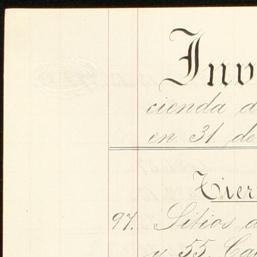 Inv
cienda d
en 31 de
Tier
97. Sitios d
y 55. Ca